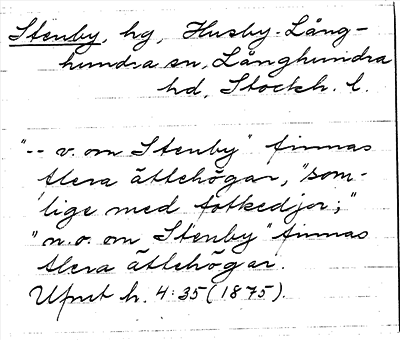 Stenby, hg, Husby-Lång-
hundra sn, Långhundra
hd, Stockh. l.
"-- v. om Stenby" finnas
flera ättehögar, "som-
lige med fotkedjor;"
"n.o. om Stenby" finnas
flera ättehögar.
Ufmt h. 4:35 (1875).